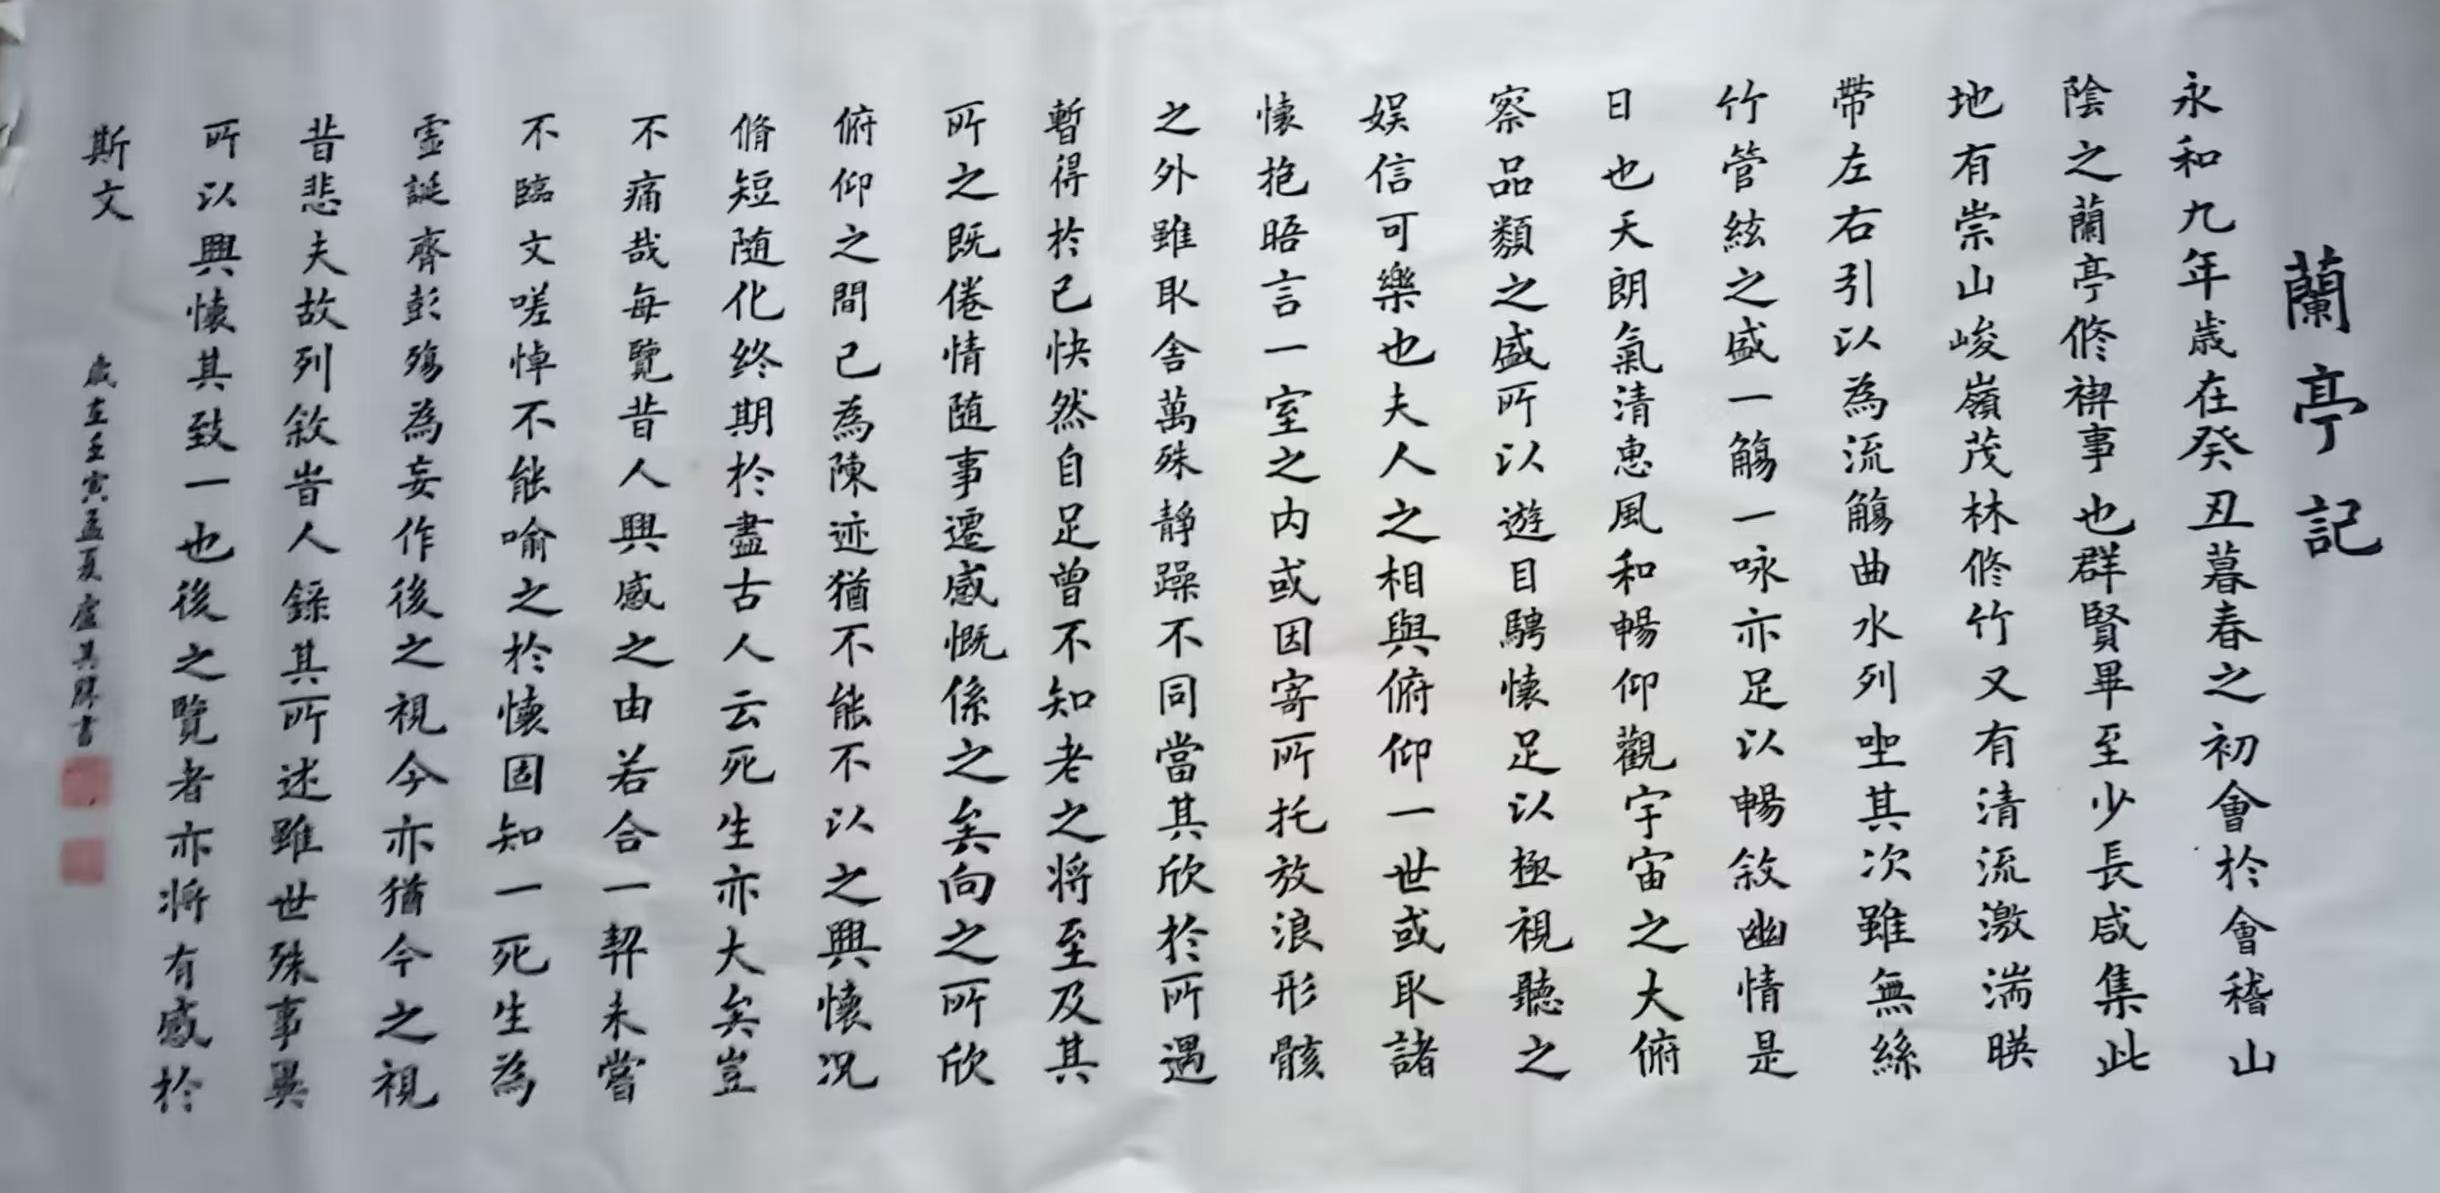 蘭亭記
永和九年歲在癸丑暮春之初會於會稽山
陰之蘭亭修禊事也群賢畢至少長咸集此
地有崇山峻嶺茂林修竹又有清流激湍暎
帶左右引以為流觴曲水列坐其次雖無絲
竹管絃之盛一觴一咏亦足以暢敘幽情是
日也天朗氣清惠風和暢仰觀宇宙之大俯
察品類之盛所以遊目騁懷足以極視聽之
娛信可樂也夫人之相與俯仰一世或取諸
懷抱晤言一室之內或因寄所托放浪形骸
之外雖取舍萬殊靜躁不同當其欣於所遇
暫得於己快然自足曾不知老之將至及其
所之既倦情隨事遷感慨係之矣向之所欣
俯仰之間已為陳迹猶不能不以之興懷況
脩短隨化终期於盡古人云死生亦大矣豈
不痛哉每覽昔人興感之由若合一契未嘗
不臨文嗟悼不能喻之於懷固知一死生為
虛誕齊彭殤為妄作後之視今亦猶今之視
昔悲夫故列敘昔人錄其所述雖世殊事異
所以興懷其致一也後之覽者亦將有感於
斯文
歲在壬寅孟夏盧其勝書